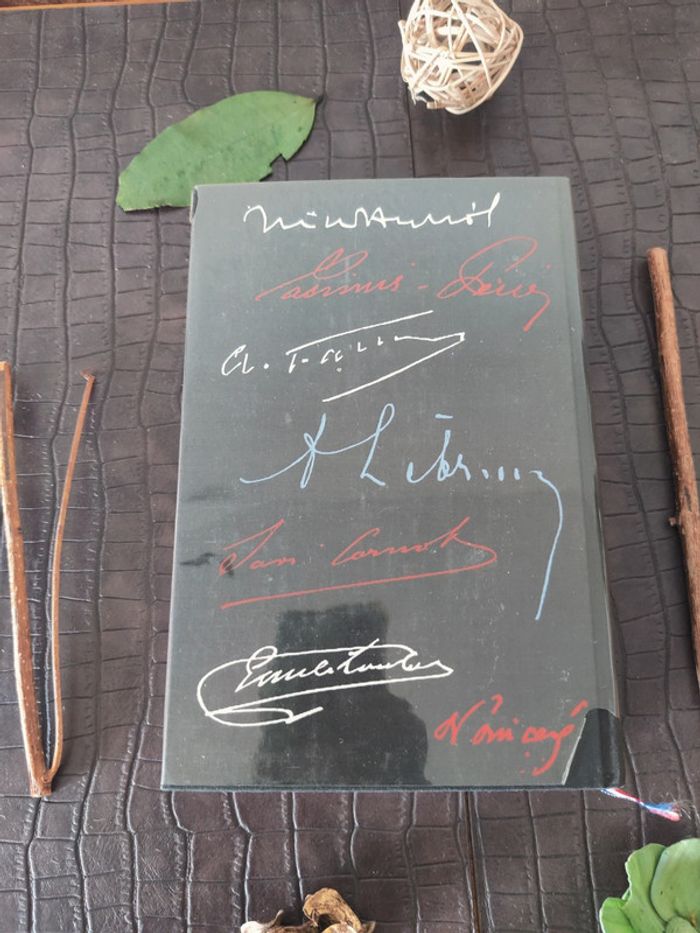 Vincent Auriol
Casimir-Perier
A. Fallières
A Lebrun
Sadi Carnot
Emile Loubet
R Poincaré